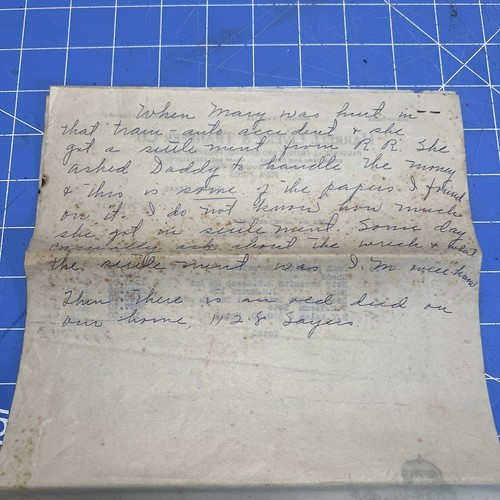 When Mary was hurt in --
that train auto accident & she
got a settlement from R R. She
asked Daddy to handle the money
& this is some of the papers I found
on it. I do not know how much
she got in settlement. Some day
ask about the wreck & what
the settlement was. I'm
Then there is an old deed on
our home, 1128 Sayers